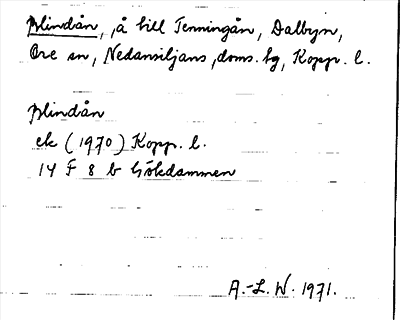 Blindån, å till Tenningån, Dalbyn,
Ore sn, Nedansiljans doms. hg, Kopp. l.
Blindån
ek (1970) Kopp. l.
14 F 8 b Gökdammen
A.-L. W. 1971.